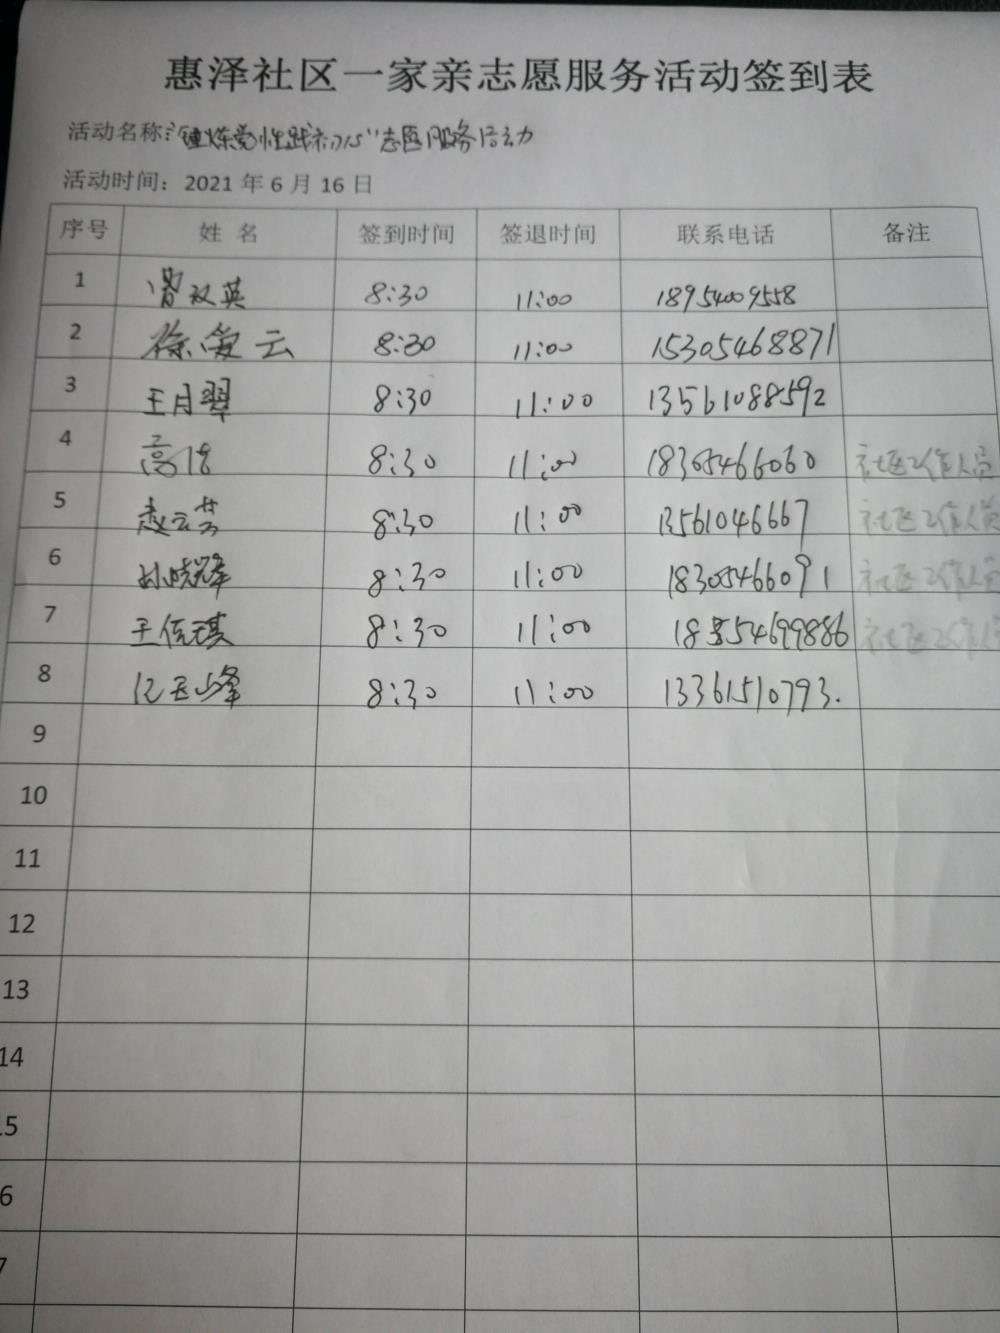 惠泽社区一家亲志愿服务活动签到表
活动名称:"锤炼党性践初心"志愿服务活动
活动时间: 2021 年 6 月 16 日
序号 姓 名 签到时间 签退时间 联系电话 备注
1 曾双英 8:30 11:00 18954009558
2 徐爱云 8:30 11:00 15305468871
3 王月翠 8:30 11:00 13561088592
4 高洁 8:30 11:00 18305466060 社区工作人员
5 赵云芳 8:30 11:00 13561046667 社区工作人员
6 孙晓翠 8:30 11:00 18305466091 社区工作人员
7 王佐琪 8:30 11:00 18854699886 社区工作人
8 8:30 11:00 13361510793.
9
10
11
12
13
14
5
6
7